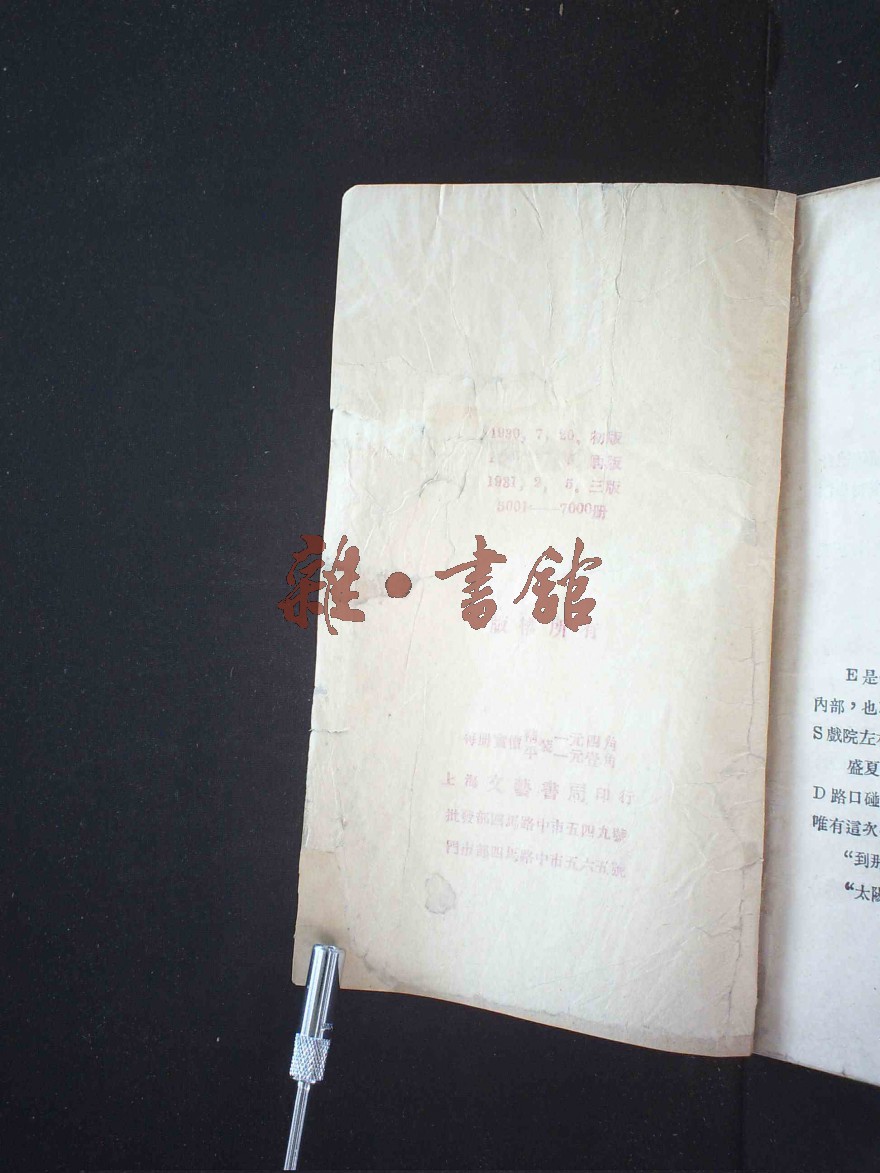 1930, 7, 20, 初版
5, 再版
1931, 2, 5, 三版
5001——7000册
雜·書館
版權所有
每册實價 精裝 一元四角
平裝 一元壹角
上海文藝書局印行
批發部四馬路中市五四九號
門市部四馬路中市五六五號
E是
內部，也
S戲院左
盛夏
D路口碰
唯有這次
“到那
“太陽